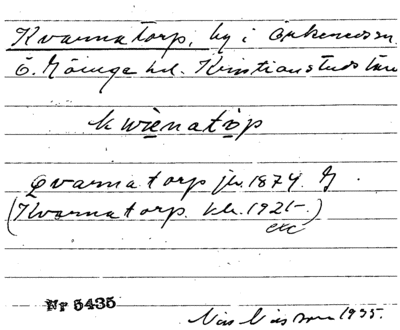 Kvarnatorp, by i Örkeneds sn
Ö. Göinge hd. Kristianstads län
kwienatop
Qvarnatorp jb. 1874. G
(Kvarnatorp. kb. 1921-.)
etc
Nr 5435
Nils Nilsson 1935.